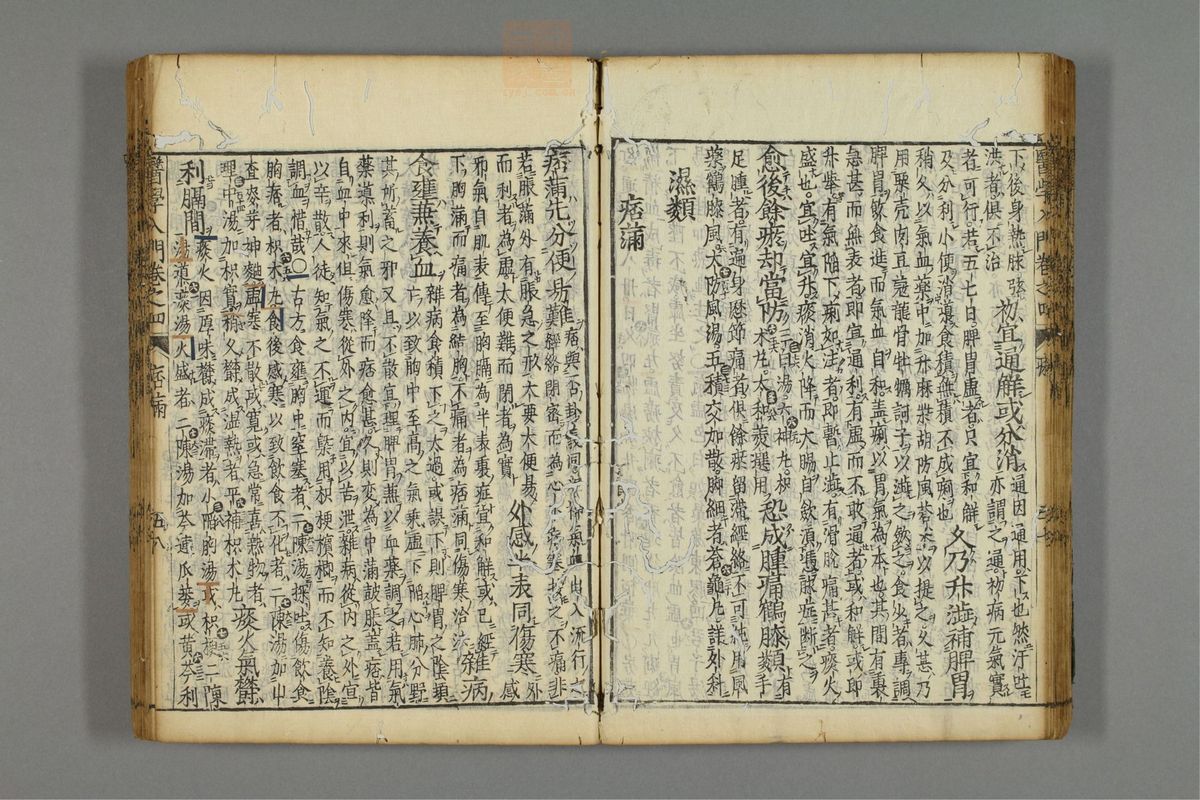 下後身熱脉強
洪者俱不治 初宜通解或分消 通因通用下也然汗吐亦謂之通初病元氣實
者可行若五七日脾胃虛者只宜和解
及分利小便消導食積無積不成痢也 久乃升澁補脾胃
稍久以氣血藥中加升麻柴胡防風蒼朮以提之久甚乃
用粟壳肉豆蔻龍骨牡蠣訶子以澁之然之食少者專調
脾胃飲食進而氣血自和盖痢以胃氣為本也其間有裏
急甚而無表者即宜通利有虛而不敢通者或和解或即
升舉有氣陷下痢如注者即暫止澁有滑脫痛甚者痰火
盛也宜吐宜升痰消火降而大腸自斂須憑脉症斷之
愈後餘瘀却當防
忽成腫痛鶴膝類 手
足腫者有遍身肢節痛者俱餘瘀留滯經絡不可純用風
藥鶴膝風大防風湯五積交加散脚細者蒼龜丸詳外科
濕類
痞滿
痞滿先分便易難
若脹滿外有脹急之形大要大便易
而利者為虛大便難而閉者為實 外感半表同傷寒 外感
邪氣自肌表傳至胸膈為半表裏症宜和解或已經
下胸滿而痛者為結胸不痛者為痞滿同傷寒治法 雜病
食壅兼養血 雜病食積下之太過或誤下則脾胃之陰頓
亡以致胸中至高之氣乘虛下陷心肺分野
其所蓄之邪又且不散宜理脾胃兼以血藥調之若用氣
藥導利則氣愈降而痞愈甚久則变為中滿皷脹盖痞皆
自血中來但傷寒從外之內宜以苦泄雜病從內之外宜
以辛散人徒知氣之不運而槩用枳梗檳榔而不知養陰
調血惜哉○古方食壅胸中窒塞者二陳湯探吐傷飲食
胸痞者枳朮丸食後感寒以致飲食不化者二陳湯加山
查麥芽神麯虛寒不散或寬或急常喜熱物者
理中湯加枳實稍久鬱成濕熱者平補枳朮丸 痰火氣鬱
利膈間 痰火因厚味鬱成痰滯者小陷胸湯或枳梗二陳
湯導痰湯火盛者二陳湯加芩連瓜蔞或黄芩利
醫學入門卷之四 痞滿 五八
醫學入門卷之四 痢